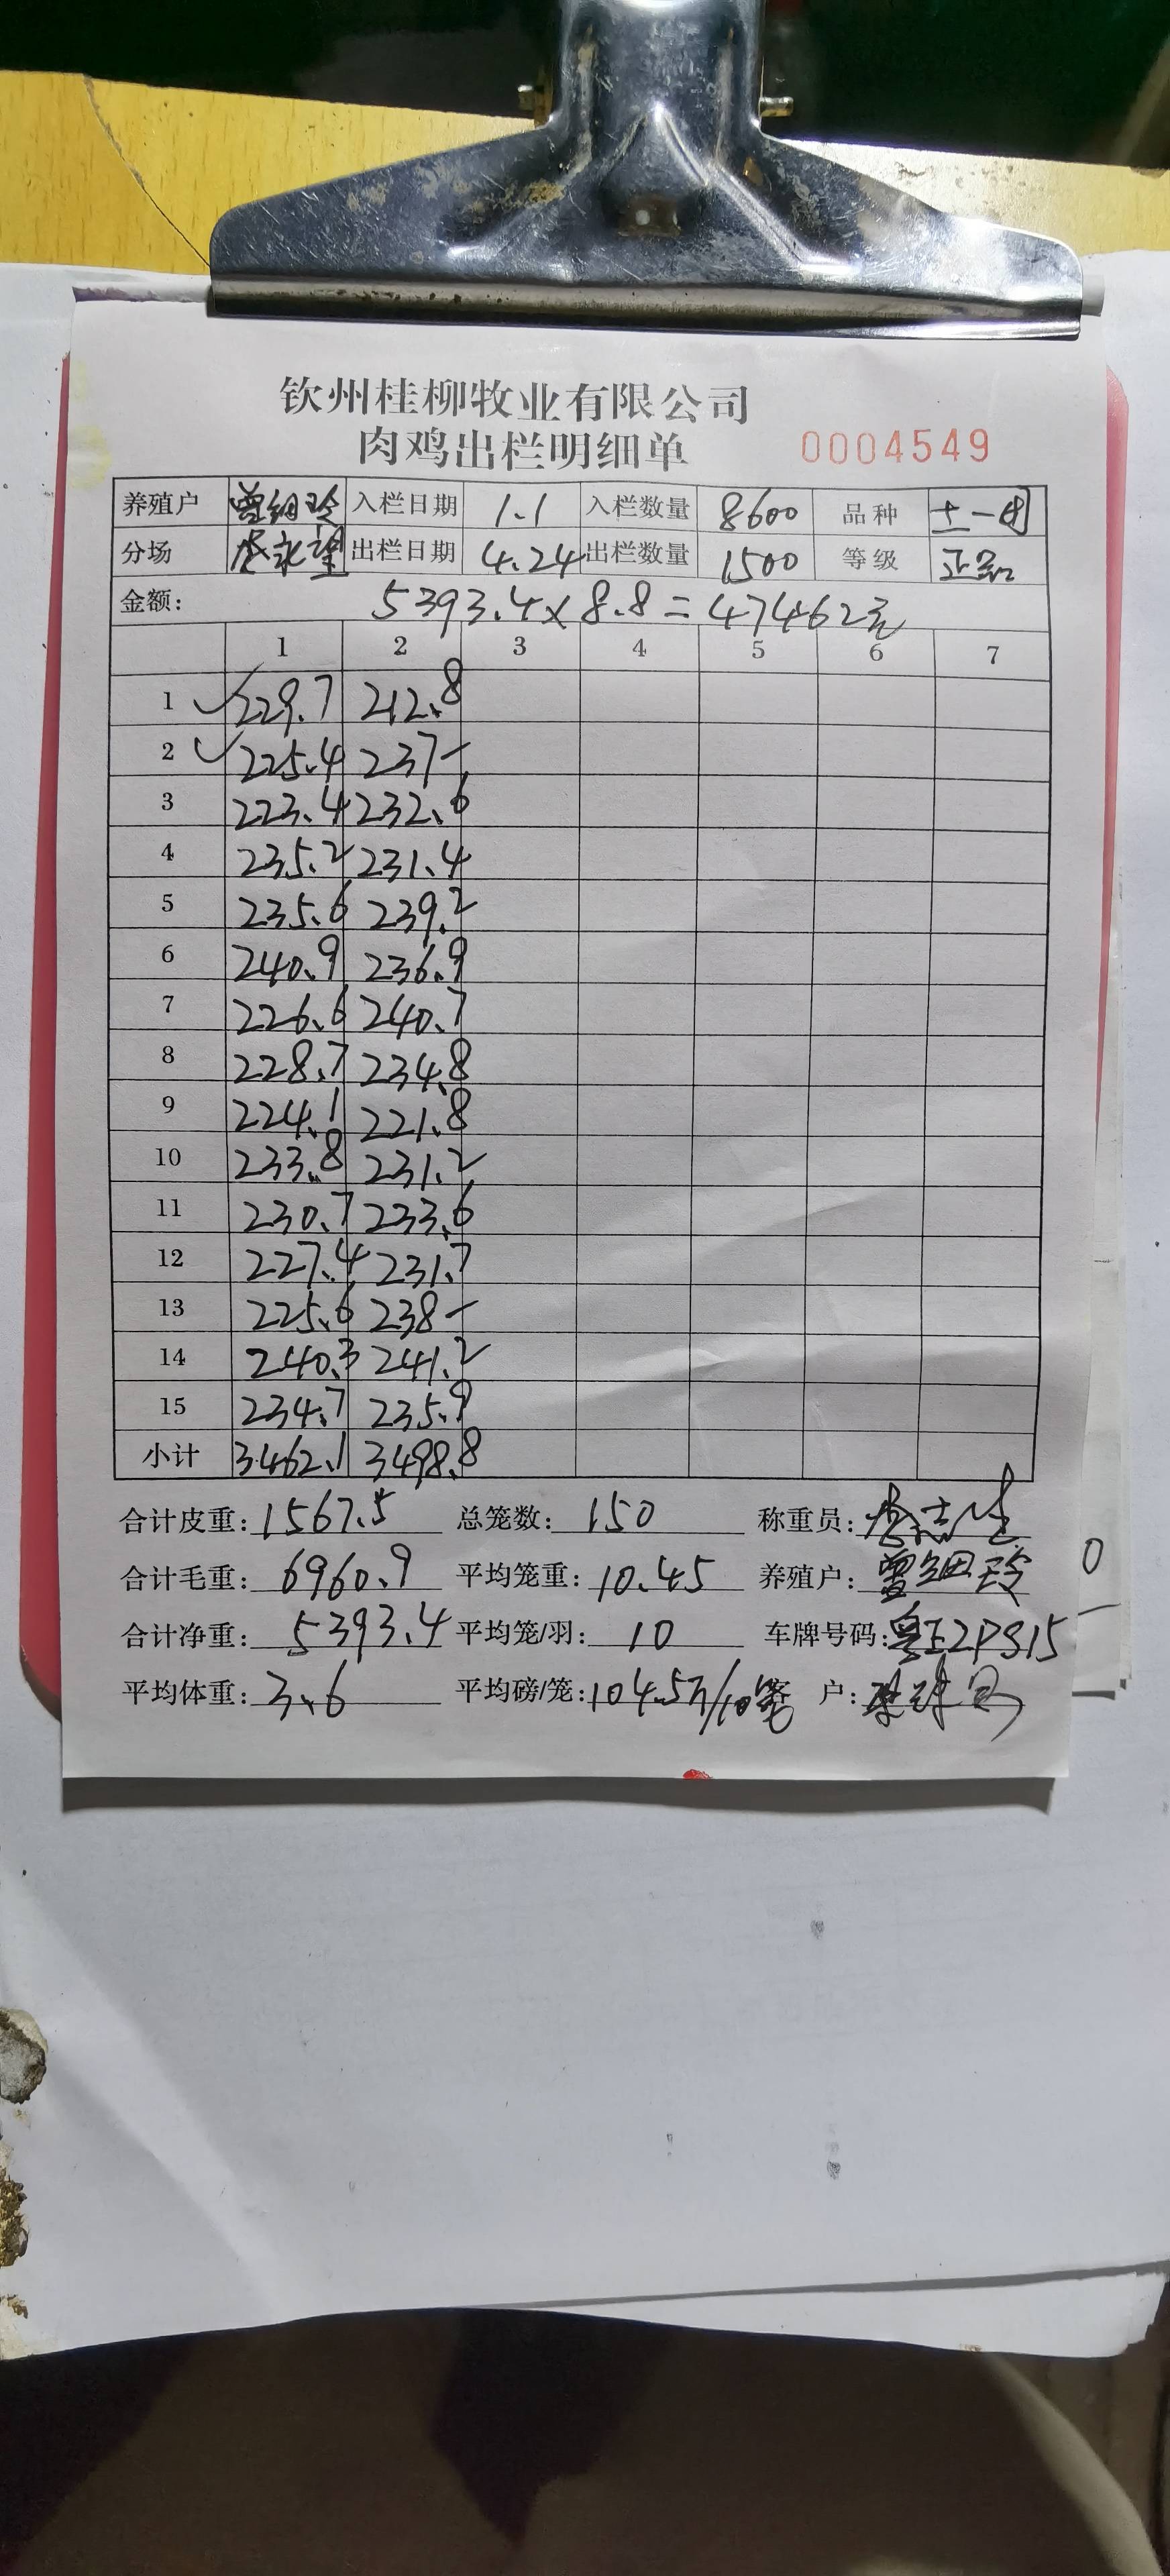 钦州桂柳牧业有限公司
肉鸡出栏明细单 0004549
养殖户 曾细玲 入栏日期 1.1 入栏数量 8600 品种 土一
分场 永望 出栏日期 4.24 出栏数量 1500 等级 正品
金额: 5393.4×8.8=47462元
1 2 3 4 5 6 7
1 229.7 212.8
2 225.4 237-
3 223.4 232.6
4 235.2 231.4
5 235.6 239.2
6 240.9 236.9
7 226.6 240.7
8 228.7 234.8
9 224.1 221.8
10 233.8 231.2
11 230.7 233.6
12 227.4 231.7
13 225.6 238-
14 240.3 241.2
15 234.7 235.9
小计 3462.1 3498.8
合计皮重: 1567.5 总笼数: 150 称重员:
合计毛重: 6960.9 平均笼重: 10.45 养殖户: 曾细玲 0
合计净重: 5393.4 平均笼/羽: 10 车牌号码: 粤E2PS15
平均体重: 3.6 平均磅/笼: 104.5斤/10笼 户: